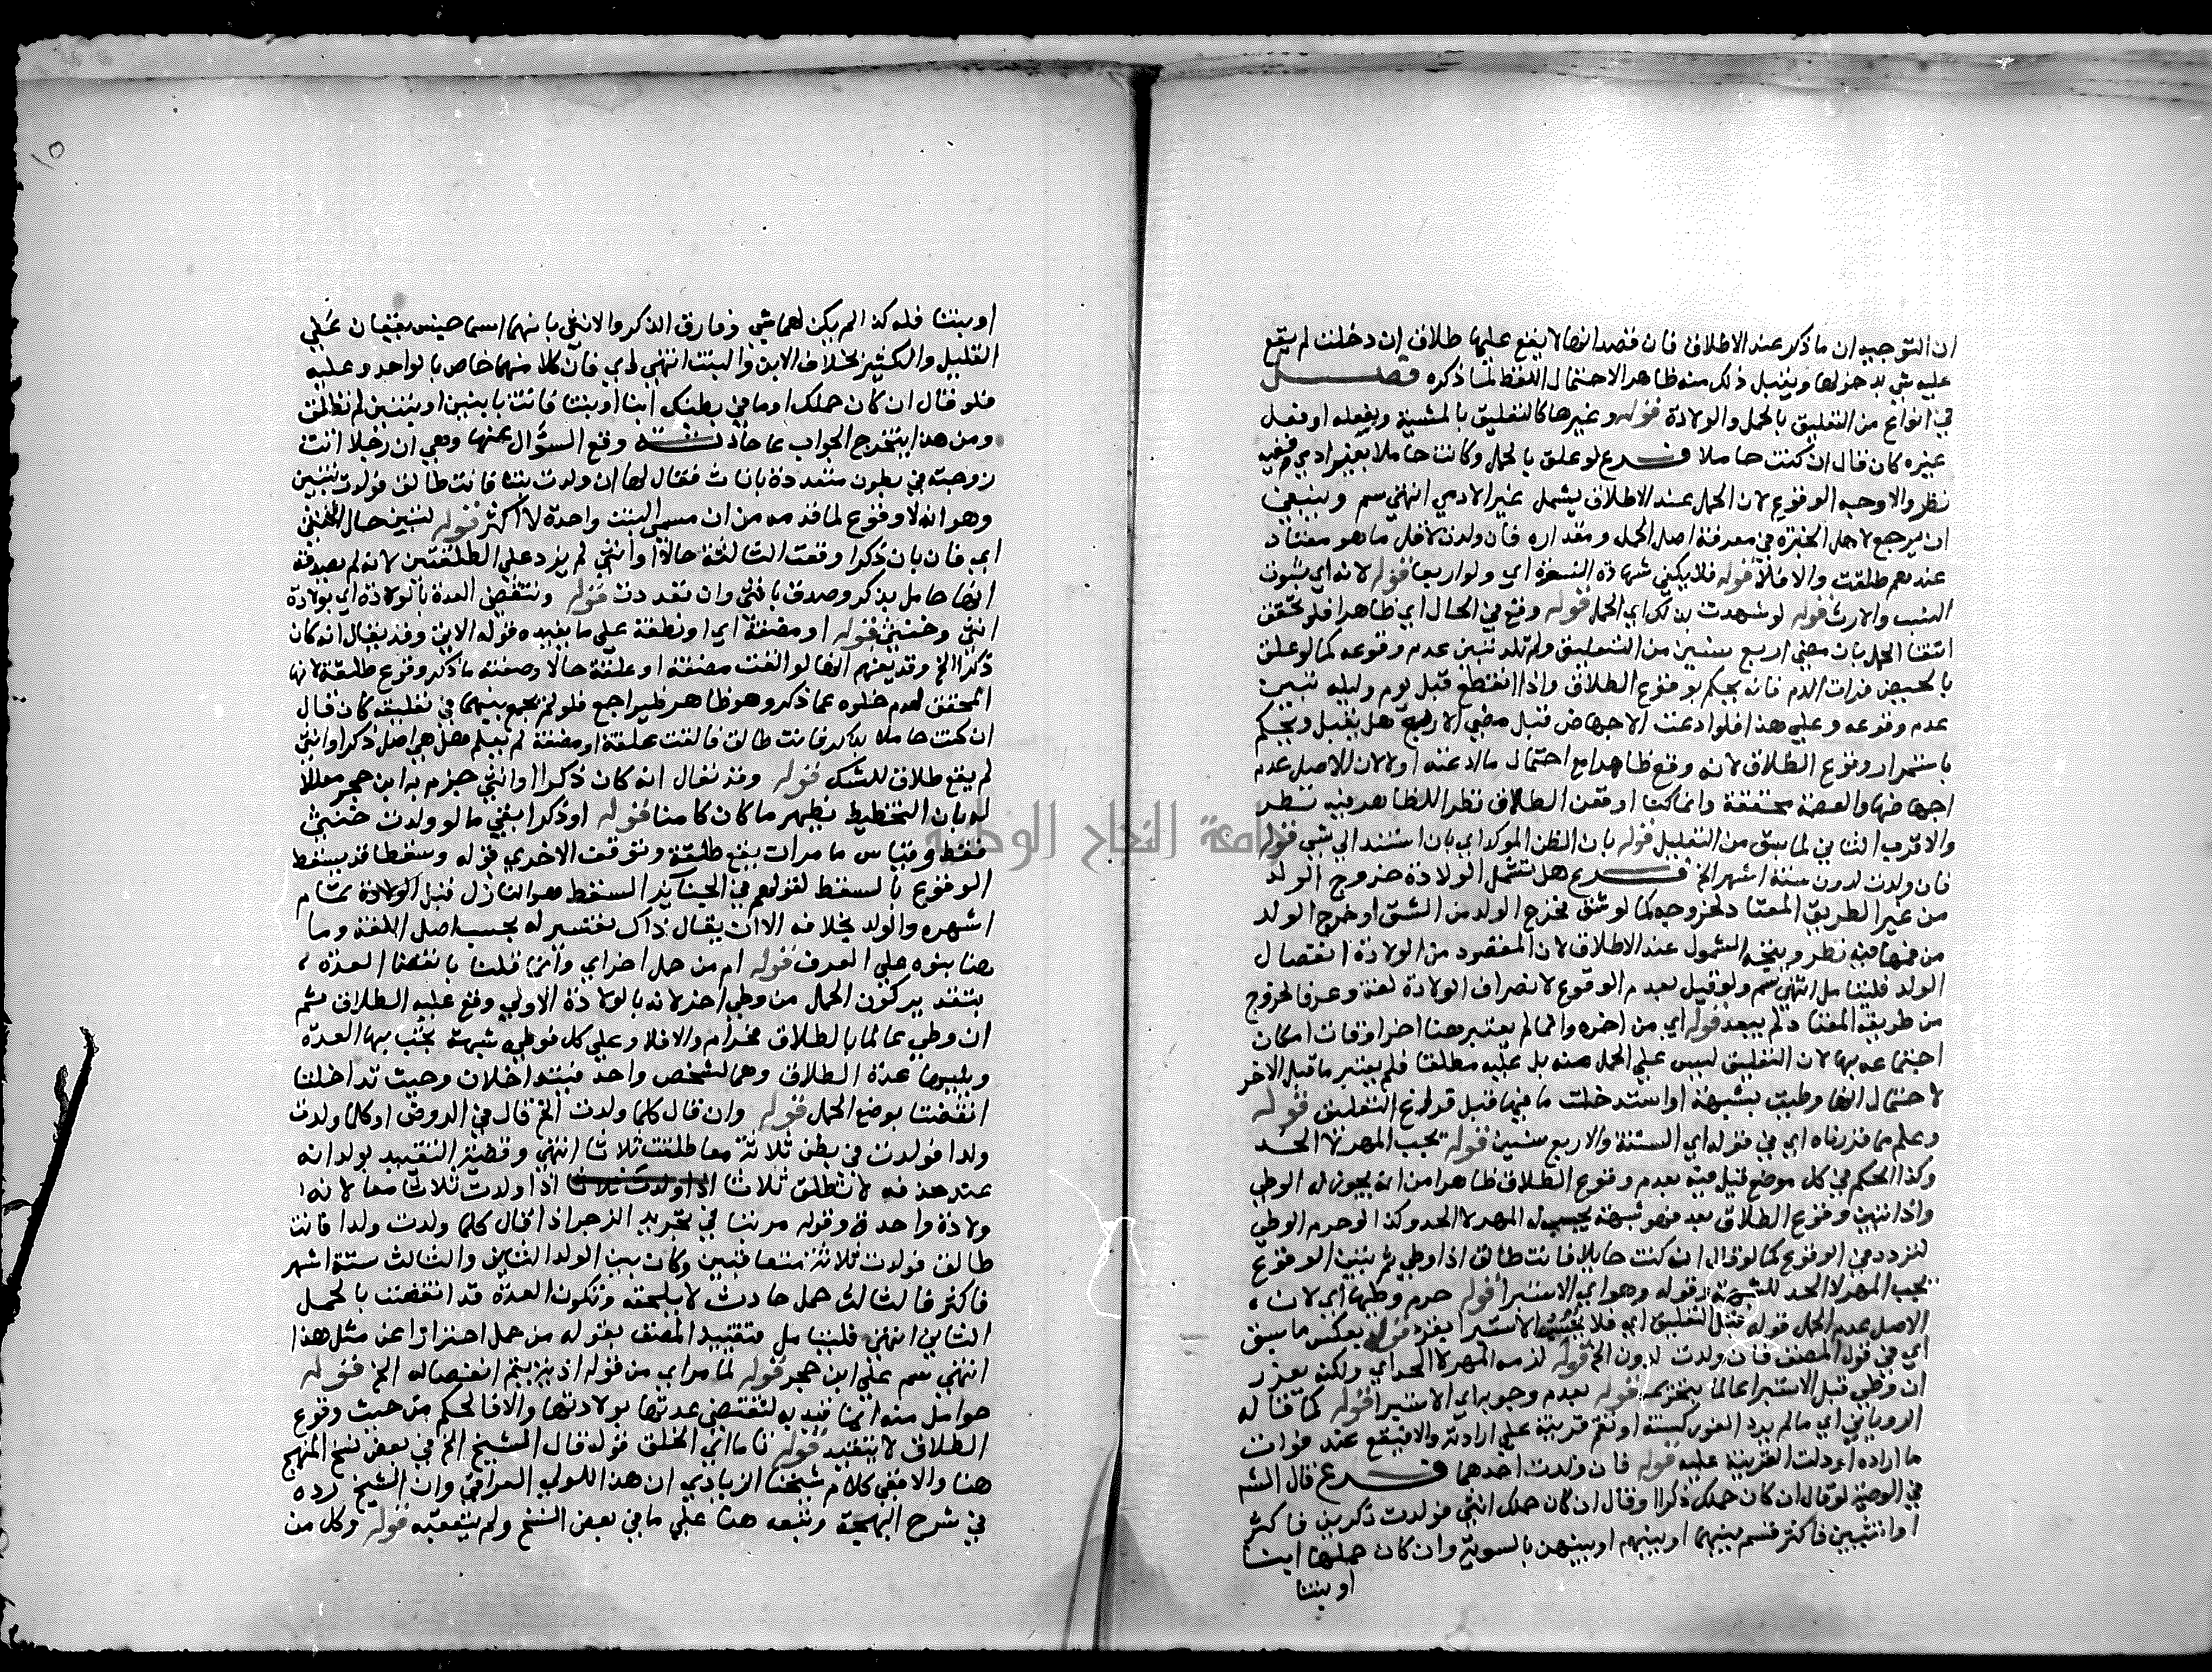 ان التوجيه ان ما ذكر عند الاطلاق فان قصد انها لا يقع عليها طلاق ان دخلت لم يقع
عليه شي بدخولها ويقبل ذلك منه ظاهر الاحتمال اللفظ لما ذكره فصل
في انواع من التعليق بالحمل والولادة قوله وغيرها كالتعليق بالمشية وبفعله او فعل
غيره كان قال ان كنت حاملا فرع لو علق بالحمل وكانت حاملا بغير ادمي ففيه
نظر والاوجه الوقوع لان الحمل عند الاطلاق يشمل غير الادمي انتهي سم وينبغي
ان يرجع لاهل الخبرة في معرفة اصل الحمل ومقداره فان ولدت لاقل ما هو معتاد
عندهم طلقت والا فلا قوله فلا يكفي شهادة النسوة اي ولو اربعا قوله لانه اي ثبوت
النسب والارث قوله لو شهدت بذلك اي الحمل قوله وقع في الحال اي ظاهرا فلو تحقق
انتفا الحمل بان مضي اربع سنين من التعليق ولم تلد تبين عدم وقوعه كما لو علق
بالحيض فرات الدم فانه يحكم بوقوع الطلاق واذا انقطع قبل يوم وليلة تبين
عدم وقوعه وعلي هذا فلو ادعت الاجهاض قبل مضي الاربع هل يقبل ويحكم
باستمرار وقوع الطلاق لانه وقع ظاهرا مع احتمال ما ادعته او لا لان الاصل عدم
اجهاضها والعصمة محققة وانما كنا اوقعنا الطلاق نظرا للظاهر فيه نظر
والاقرب الثاني لما سبق من التعليل قوله بان الظن الموكد اي بان استند الي شي قوله
فان ولدت لدون ستة اشهر الخ فرع هل تشمل الولادة خروج الولد
من غير الطريق المعتاد لخروجه كما لو شق مخرج الولد من الشق او خرج الولد
من فمها فيه نظر ويتجه الشمول عند الاطلاق لان المقصود من الولادة انفصال
الولد فليتامل انتهي سم ولو قيل بعدم الوقوع لانصراف الولادة لغة وعرفا لخروج
من طريقه المعتاد لم يبعد قوله اي من اخره وانما لم يعتبر هنا اخر اوقات امكان
اجتماعه بها لان التعليق ليس علي الحمل منه بل عليه مطلقا فلم يعتبر ما قبل الاخر
لاحتمال انها وطيت بشبهة او استدخلت ما فيها قبل فراغ التعليق قوله
وعلم مما قررناه اي في قوله اي الستة والاربع سنين قوله يجب المهر لا الحد
وكذا الحكم في كل موضع قيل فيه بعدم وقوع الطلاق ظاهرا من انه يجوز له الوطي
واذا تبين وقوع الطلاق بعد فهو شبهة يجب له المهر لا الحد وكذا لو حرم الوطي
لتردد في الوقوع كما لو قال ان كنت حايلا فانت طالق اذا وطي ثم تبين الوقوع
يجب المهر لا الحد للشبهة وقوله وهو اي الاستبرا قوله حرم وطيها اي لان
الاصل عدم الحمل قوله قبل التعليق اي فلا الاستبرا بعده قوله بعكس ما سبق
اي في قول المصنف فان ولدت لدون الخ قوله لزمه المهر لا الحد اي ولكنه يعزر
ان وطي قبل الاستبرا عالما بتحريمه قوله بعدم وجوبه اي الاستبرا قوله كما قاله
الروياني اي ما لم يرد الفور كسنة او تقم قرينة علي ارادته والا فيقع عند فوات
ما اراده او دلت القرينة عليه قوله فان ولدت احدهما فرع قال الشم
في الوصية لو قال ان كان حملك ذكرا او قال ان كان حملك انثي فولدت ذكرين فاكثر
او انثيين فاكثر قسم بينهما او بينهم او بينهن بالسوية وان كان حملها ابنا
او بنتا
او بنتا فله كذا لم يكن لهما شي وفارق الذكر والانثي بانهما اسما جنس يقعان علي
القليل والكثير بخلاف الابن والبنت انتهي اي فان كلا منهما خاص بالواحد وعليه
فلو قال ان كان حملك او ما في بطنك ابنا او بنتا فاتت بابنين او بنتين لم تطلق
ومن هذا يتخرج الجواب عما حادثة وقع السؤال عنها وهي ان رجلا اتت
زوجته في بطون متعددة باناث فقال لها ان ولدت بنتا فانت طالق فولدت بنتين
وهو انه لا وقوع لما قدمه من ان مسمي البنت واحدة لا اكثر قوله لتبين حال الخنثي
اي فان بان ذكرا وقعت الثالثة حالا او انثي لم يزد علي الطلقتين لانه لم يصدق
انها حامل بذكر وصدق بانثي وان تعددت قوله وتنقضي العدة بالولادة اي بولادة
انثي وخنثي قوله او مضغة اي او نطفة علي ما يفيده قوله الاتي وقد يقال انه كان
ذكرا الخ وقد يفهم انها لو القت مضغة او علقة حالا وصفته ما ذكر وقوع طلقة لانها
المحقق لعدم خلوه عما ذكر وهو ظاهر فليراجع فلو لم يجمع بينهما في تعليقه كان قال
ان كنت حاملا بذكر فانت طالق فالقت علقة او مضغة لم يعلم هل هي اصل ذكر او انثي
لم يقع طلاق للشك قوله وقد نقال انه كان ذكرا او انثي جزم به ابن حجر معللا
له بان التخطيط يظهر ما كان كامنا قوله او ذكرا بقي ما لو ولدت خنثي
فقط وقياس ما مر ان يقع طلقة وتوقف الاخري قوله وسقطا قد يسقط
الوقوع بالسقط لقولهم في الجنايز السقط هو النازل قبل الولادة تمام
اشهره والولد بخلافه الا ان يقال ذاك تفسير له بحسب اصل اللغة وما
هنا بنوه علي العرف قوله ام من حمل اخر اي وانما قلنا بانقضا العدة
بتقدير كون الحمل من وطي اخر لانه بالولادة الاولي وقع عليه الطلاق ثم
ان وطي عالما بالطلاق فحرام والا فلا وعلي كل فوطي شبهة يجب بها العدة
وعليها عدة الطلاق وهما لشخص واحد فيتداخلان وحيث تداخلتا
انقضتا بوضع الحمل قوله وان قال كلما ولدت الخ قال في الروض او كلما ولدت
ولدا فولدت في بطن ثلاثة معا طلقت ثلاثا انتهي وقضية التقييد بولد انه
عند حذفه لا تطلق ثلاثا اذا ولدت ثلاثا اذا ولدت ثلاثا معا لانه
ولادة واحدة وقوله مرتبا في تجريد الزجر اذا قال كلما ولدت ولدا فانت
طالق فولدت ثلاثة متعاقبين وكان بين الولد الثاني والثالث ستة اشهر
فاكثر فالثالث حمل حادث لا يلحقه وتكون العدة قد انقضت بالحمل
الثاني انتهي فليتامل فتقييد المصنف بقوله من حمل احترازا عن مثل هذا
انتهي سم علي ابن حجر قوله لما مر اي من قوله اذ به يتم انفصاله الخ قوله
حوامل منه انما قيد به لتنقضي عدتها بولادتها والا فالحكم من حيث وقوع
الطلاق لا يتقيد قوله فاما اي الخلق قوله قال الشيخ الخ في بعض نسخ المنهج
هنا والا ففي كلام شيخنا الزيادي ان هذا للولي العراقي وان الشيخ رده
في شرح البهجة وتبعه هنا علي ما في بعض النسخ ولم يتعقبه قوله وكل من